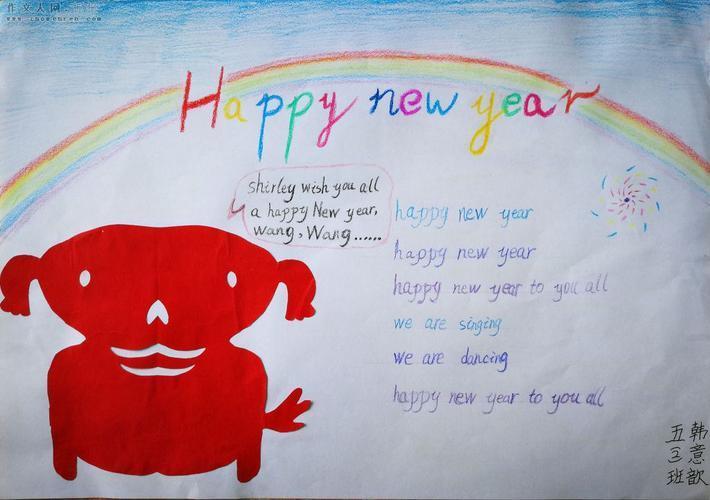 作文人网
www.zuowenren.com
Happy new year
shirley wish you all
a happy New year,
wang, Wang......
happy new year
happy new year
happy new year to you all
we are singing
we are dancing
happy new year to you all
韩意歆
五三班